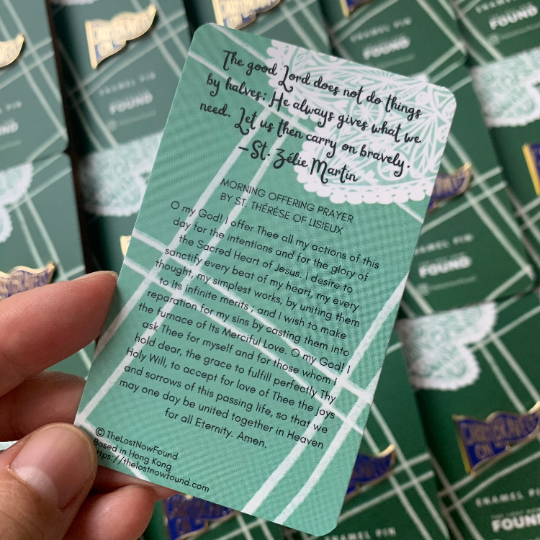 The good Lord does not do things
by halves; He always gives what we
need. Let us then carry on bravely.
-St. Zélie Martin
MORNING OFFERING PRAYER
BY ST. THÉRÈSE OF LISIEUX
O my God! I offer Thee all my actions of this
day for the intentions and for the glory of
the Sacred Heart of Jesus. I desire to
sanctify every beat of my heart, my every
thought, my simplest works, by uniting them
to Its infinite merits; and I wish to make
reparation for my sins by casting them into
the furnace of Its Merciful Love. O my God! I
ask Thee for myself and for those whom I
hold dear, the grace to fulfill perfectly Thy
Holy Will, to accept for love of Thee the joys
and sorrows of this passing life, so that we
may one day be united together in Heaven
for all Eternity. Amen.
© TheLostNowFound
Based in Hong Kong
https://thelostnowfound.com
ENAMEL PIN
FOUND
ENAMEL PIN
FOUND
ENAMEL PIN
FOUND
ENAMEL PIN
FOUND